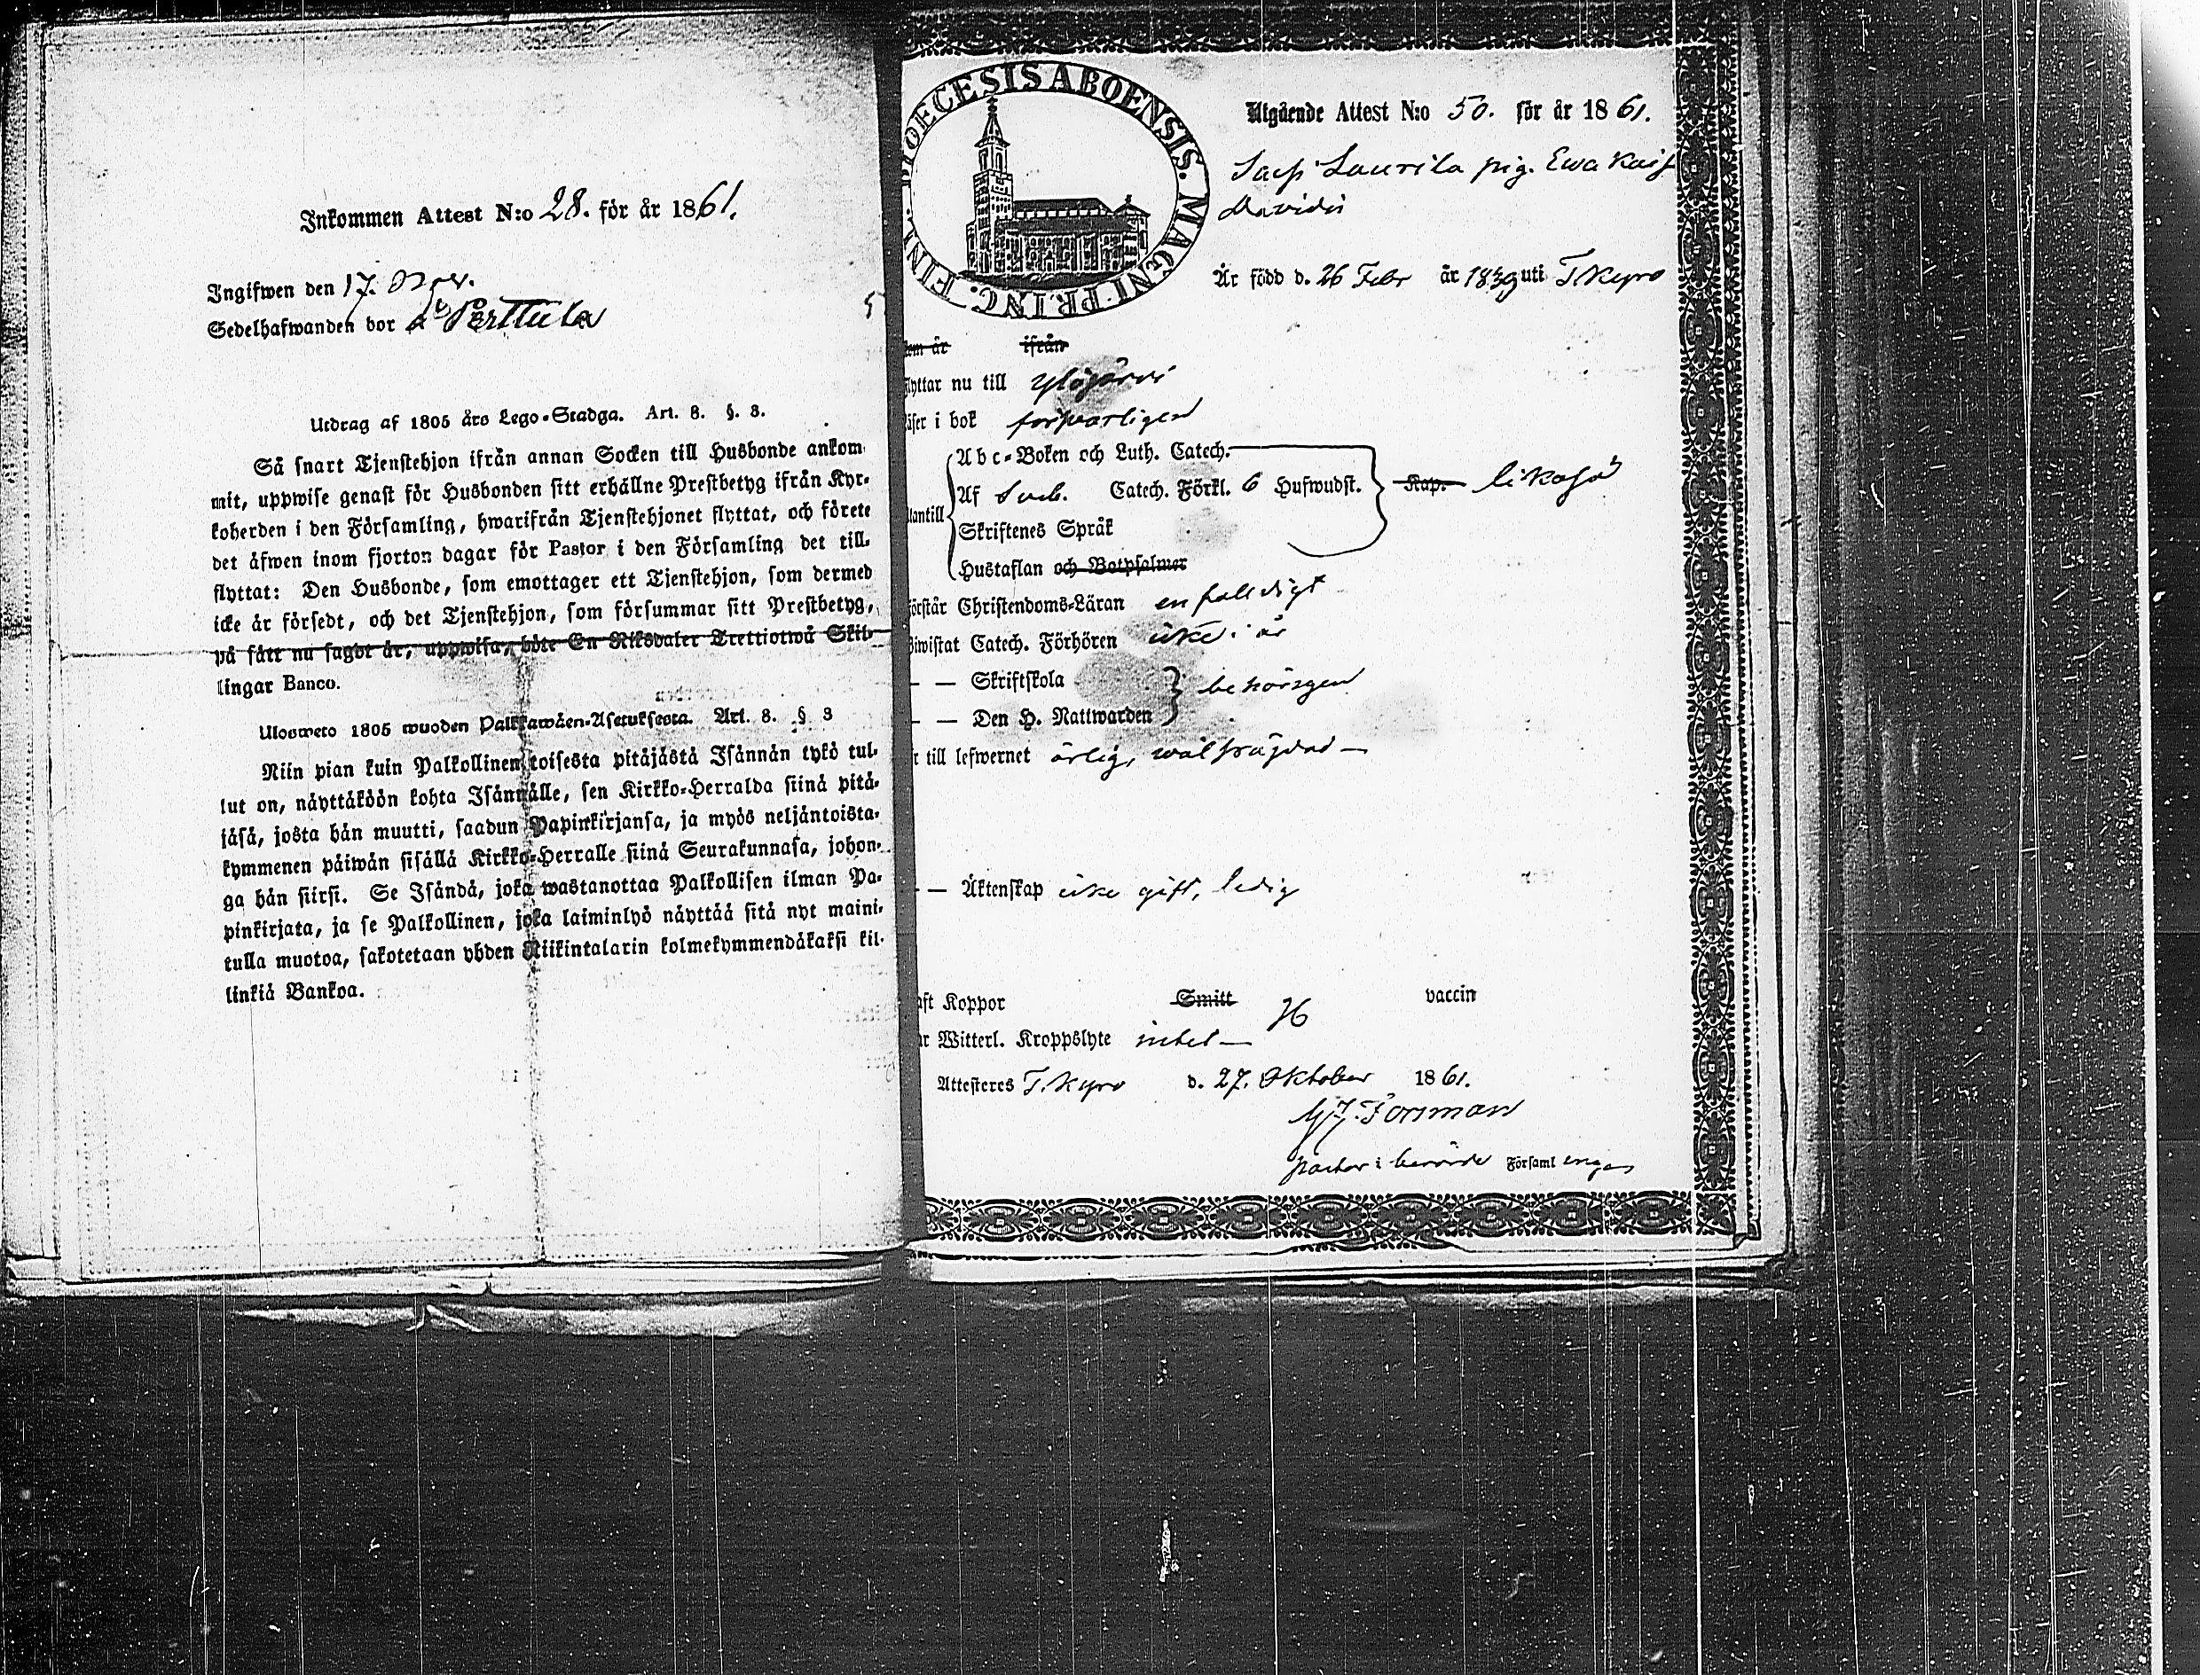 Inkommen Attest N:o 28. för år 1861.
Ingifwen den 17. Nov.
Sedelhafwanden bor på Perttula
Utdrag af 1805 års Lego-Stadga. Art. 8. §. 3.
Så snart Tjenstehjon ifrån annan Socken till Husbonde ankom-
mit, uppwise genast för Husbonden sitt erhållne Prestbetyg ifrån Kyr-
koherden i den Församling, hwarifrån Tjenstehjonet flyttat, och förete
det äfwen inom fjorton dagar för Pastor i den Församling det till-
flyttat: Den Husbonde, som emottager ett Tjenstehjon, som dermed
icke är försedt, och det Tjenstehjon, som försummar sitt Prestbetyg,
på sätt nu sagdt är, uppwisa, böte En Riksdaler Trettiotwå Skil-
lingar Banco.
Ulosweto 1805 wuoden Palkkawäen-Asetuksesta. Art. 8. § 3
Niin pian kuin Palkollinen toisesta pitäjästä Isännän tykö tul-
lut on, näyttäköön kohta Isännälle, sen Kirkko-Herralda siinä pitä-
jäsä, josta hän muutti, saadun Papinkirjansa, ja myös neljäntoista-
kymmenen päiwän sisällä Kirkko-Herralle siinä Seurakunnasa, johon-
ga hän siirsi. Se Isändä, joka wastanottaa Palkollisen ilman Pa-
pinkirjata, ja se Palkollinen, joka laiminlyö näyttää sitä nyt maini-
tulla muotoa, sakotetaan yhden Riikintalarin kolmekymmendäkaksi kil-
linkiä Bankoa.
DIOECESIS ABOENSIS. MAGNI PRINC. FINL.
Utgående Attest N:o 50. för år 1861.
Laurila pig. Ewa Kajsa
Davids
Är född d. 26 Febr år 1839 uti T.kyro
som är ifrån
flyttar nu till Ylöjärvi
läser i bok försvarligen
Abc-Boken och Luth. Catech.
Af Sveb. Catech. Förkl. 6 Hufwudst. Kap. likaså
utantill
Skriftenes Språk
Hustaflan och Botpsalmer
förstår Christendoms-Läran enfalldigt
Biwistat Catech. Förhören icke i år
— — Skriftskola
behörigen
— — Den H. Nattwarden
är till lefwernet ärlig, wälfrägdad —
— — Äktenskap icke gift, ledig
haft Koppor Smitt vaccin
har Witterl. Kroppslyte intet —
Attesteres T.kyro d. 27. Oktober 1861.
Forsman
pastor i berörde Församlingen